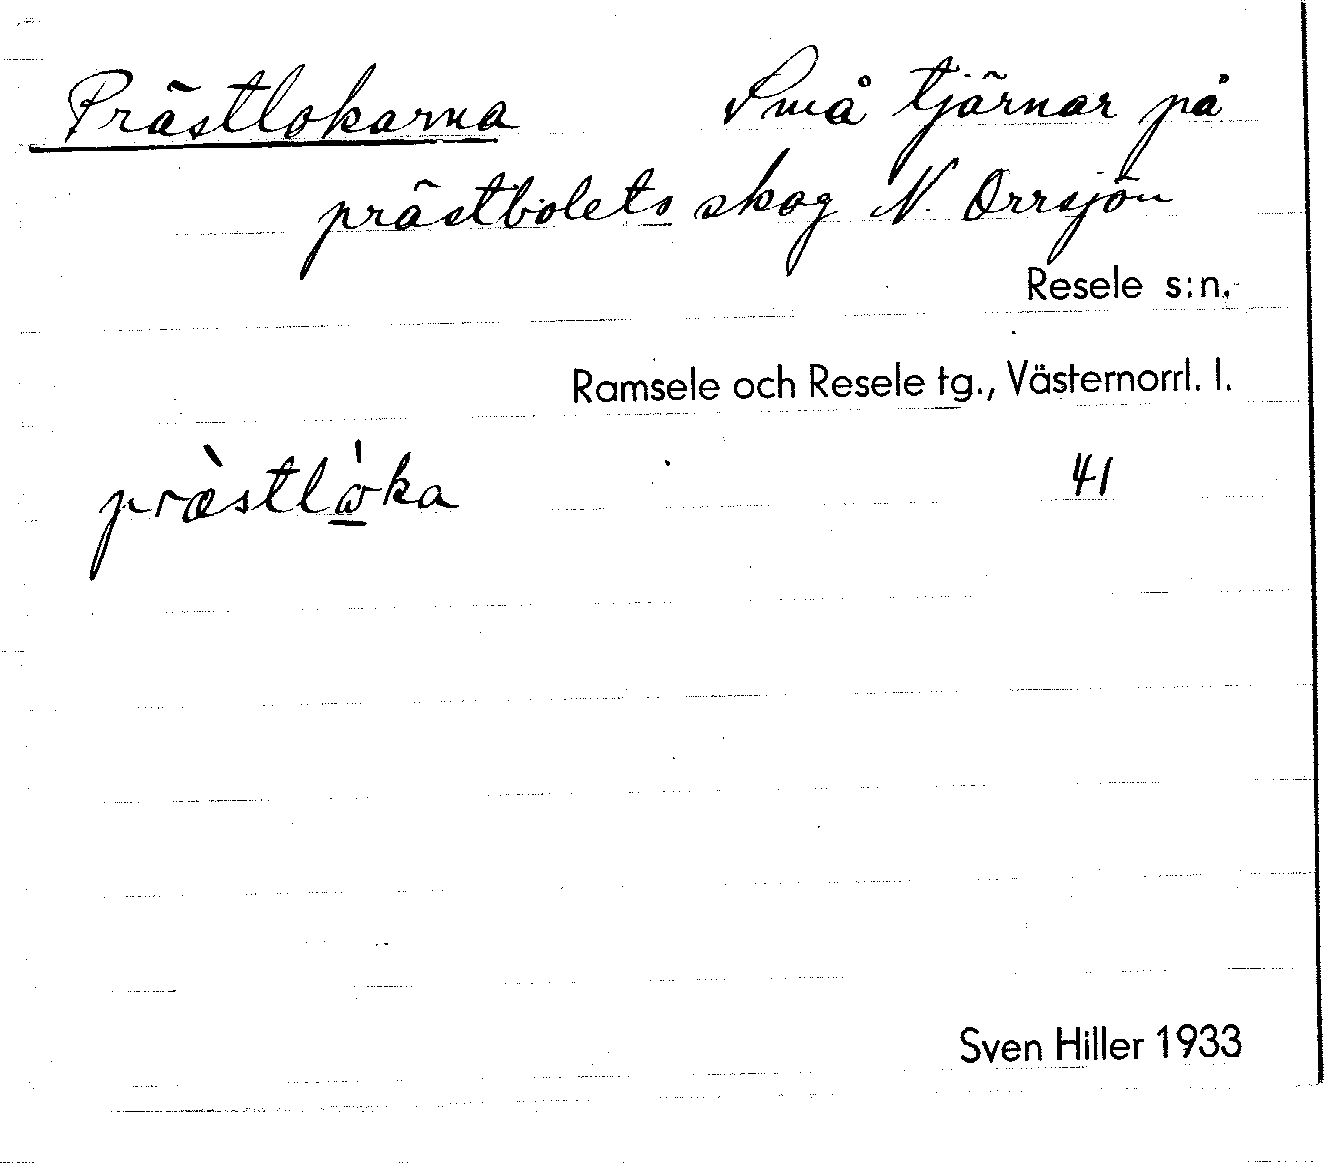 Prästlokarna Små tjärnar på
prästbolets skog N. Orrsjön
Resele s:n.
Ramsele och Resele tg., Västernorrl. l.
41
Sven Hiller 1933